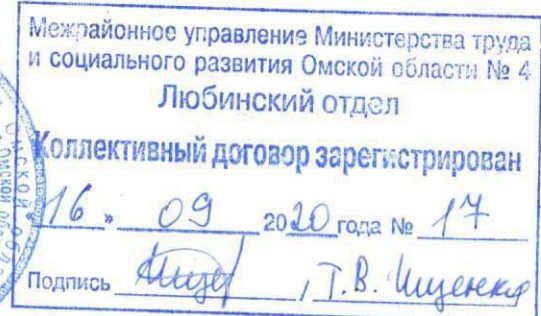 Межрайонное управление Министерства труда
и социального развития Омской области № 4
Любинский отдел
Коллективный договор зарегистрирован
16 » 09 2020 года № 17
Подпись , Т.В. Ищенко